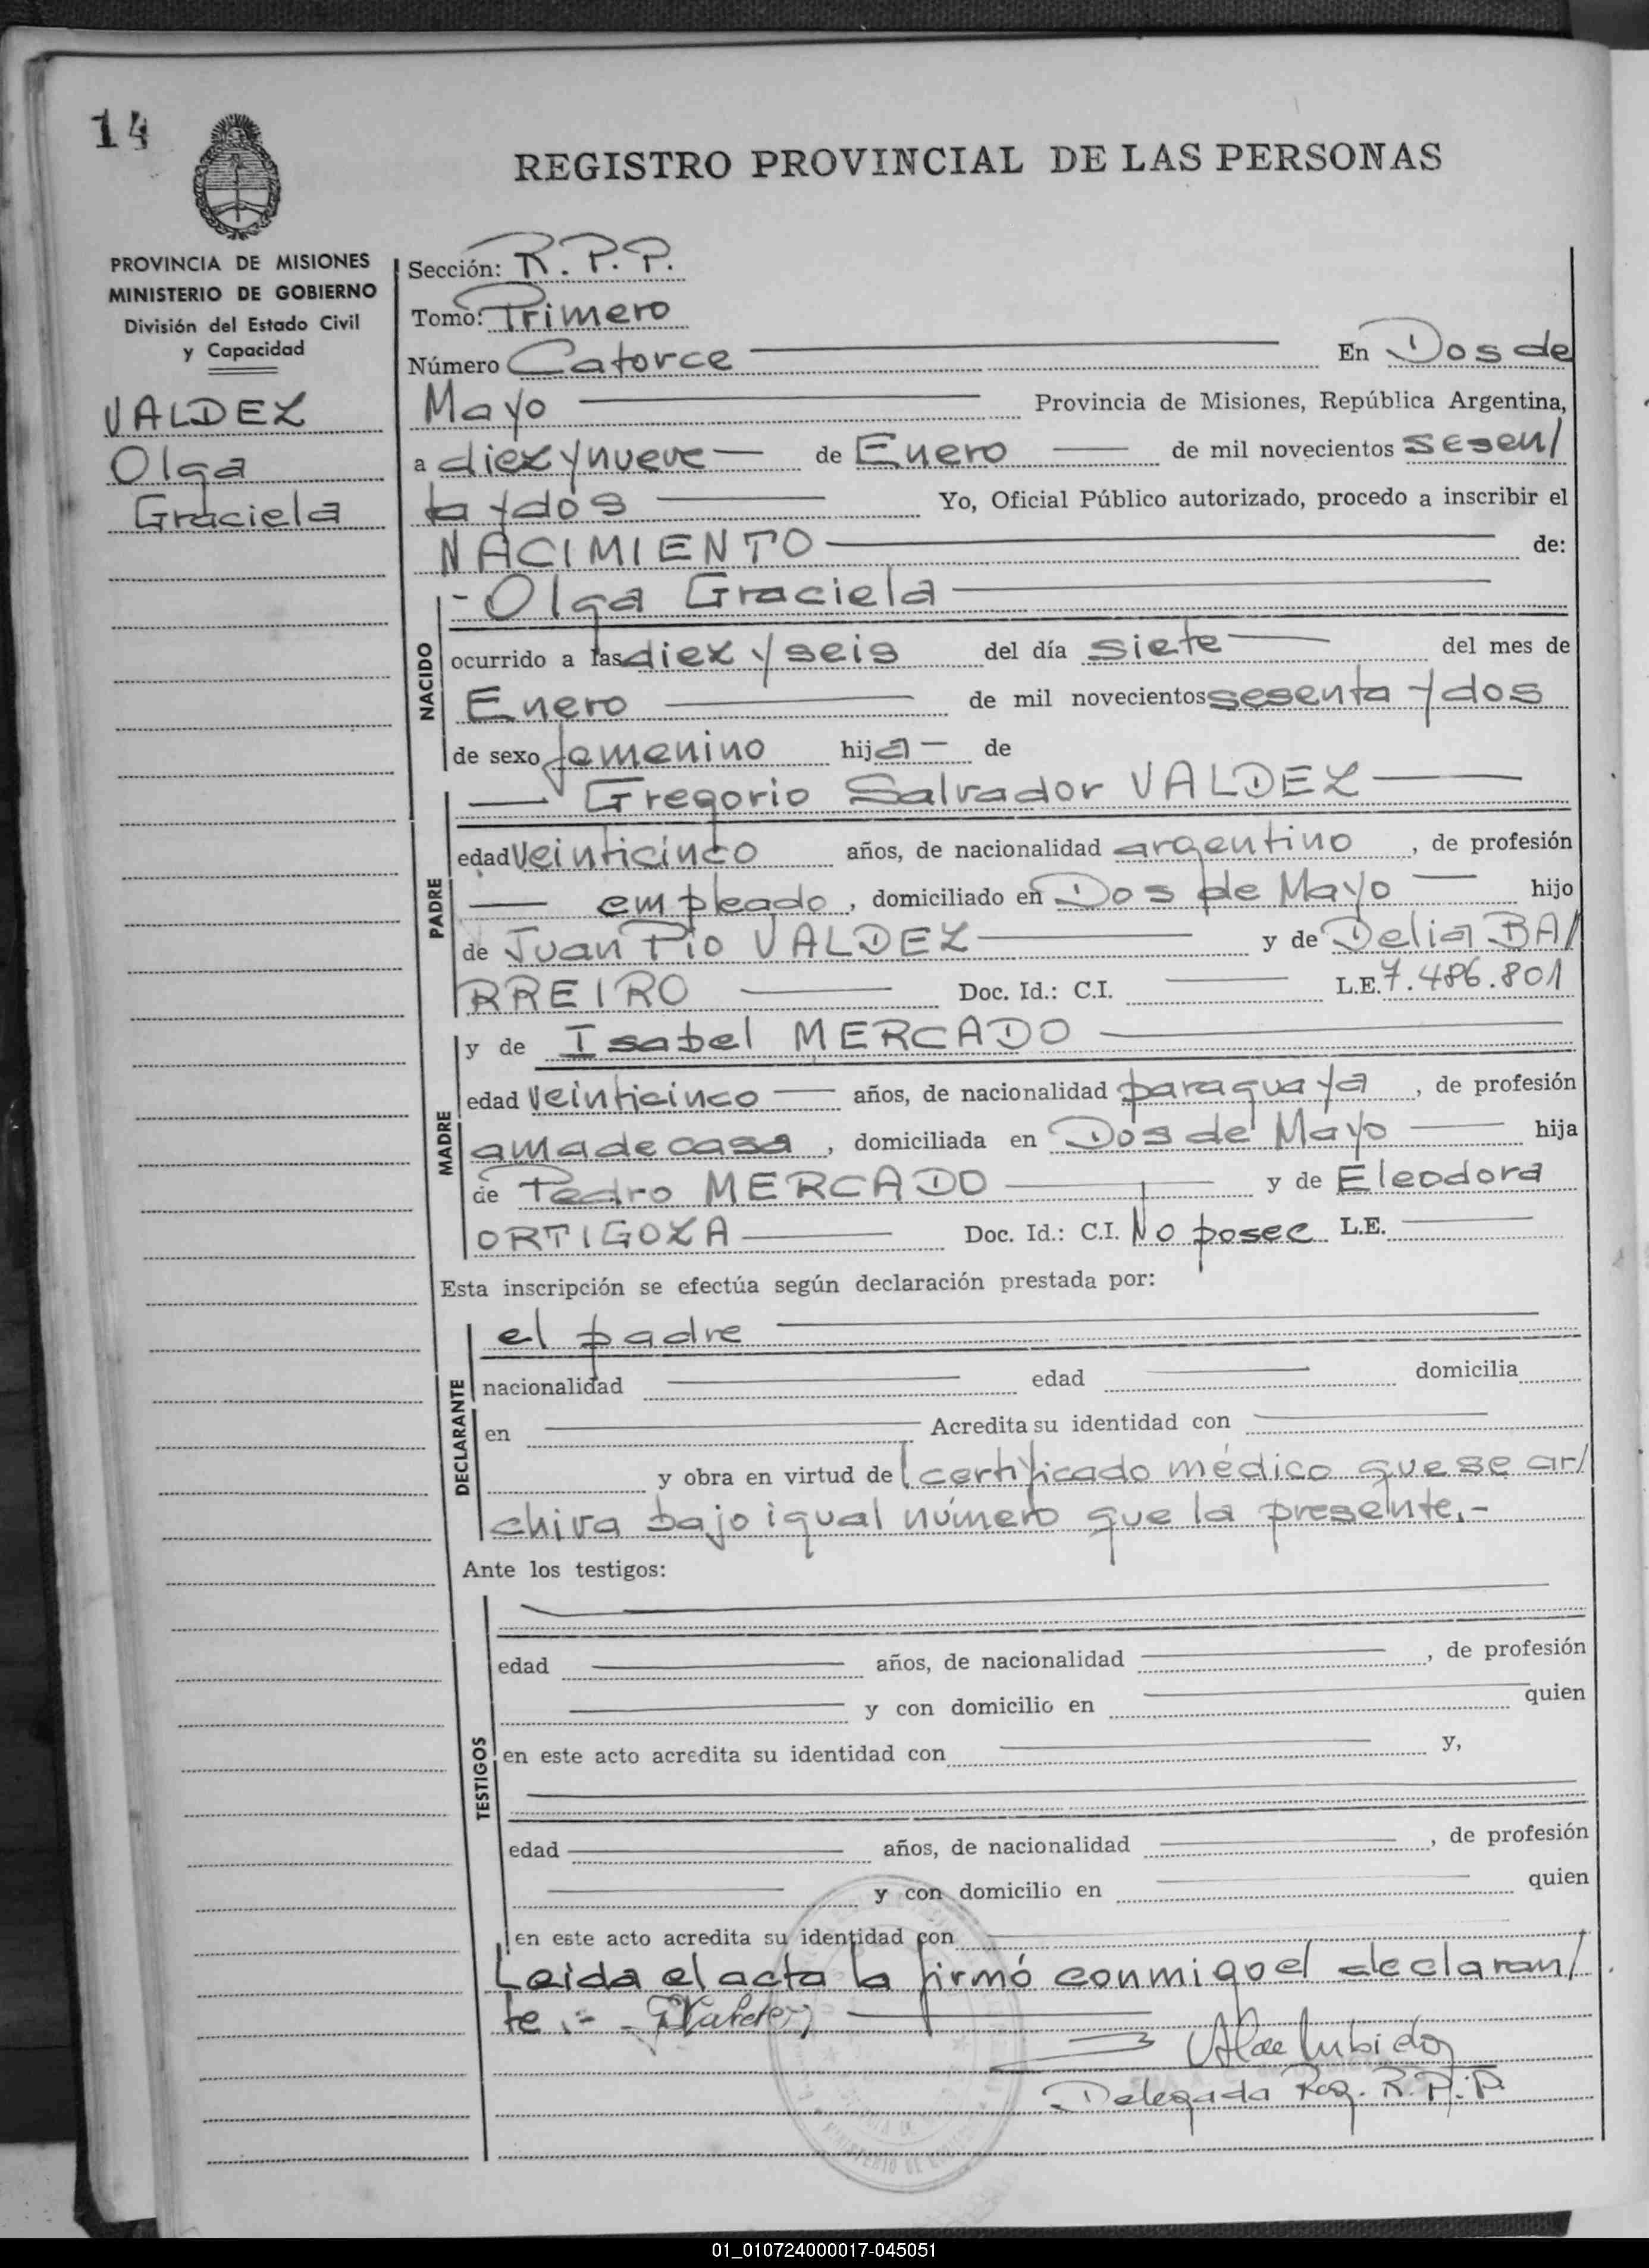 14
REGISTRO PROVINCIAL DE LAS PERSONAS
PROVINCIA DE MISIONES
MINISTERIO DE GOBIERNO
División del Estado Civil
y Capacidad
VALDEZ
Olga
Graciela
Sección: R. P. P.
Tomo: Primero
Número Catorce En Dos de
Mayo Provincia de Misiones, República Argentina,
a diez y nueve de Enero de mil novecientos sesen/
ta y dos Yo, Oficial Público autorizado, procedo a inscribir el
NACIMIENTO de:
NACIDO
- Olga Graciela
ocurrido a las diez y seis del día siete del mes de
Enero de mil novecientos sesenta y dos
de sexo femenino hija de
PADRE
Gregorio Salvador VALDEZ
edad veinticinco años, de nacionalidad argentino, de profesión
empleado, domiciliado en Dos de Mayo hijo
de Juan Pio VALDEZ y de Delia BA/
RREIRO Doc. Id.: C.I. L.E. 7.486.801
MADRE
y de Isabel MERCADO
edad veinticinco años, de nacionalidad paraguaya, de profesión
ama de casa, domiciliada en Dos de Mayo hija
de Pedro MERCADO y de Eleodora
ORTIGOZA Doc. Id.: C.I. No posee L.E.
Esta inscripción se efectúa según declaración prestada por:
DECLARANTE
el padre
nacionalidad edad domicilia
en Acredita su identidad con
y obra en virtud de l certificado médico que se ar/
chiva bajo igual número que la presente.-
Ante los testigos:
TESTIGOS
edad años, de nacionalidad , de profesión
y con domicilio en quien
en este acto acredita su identidad con y,
edad años, de nacionalidad , de profesión
y con domicilio en quien
en este acto acredita su identidad con
Leida el acta la firmó conmigo el declaran/
te.-
Delegada Reg. R. P. P.
01_010724000017-045051